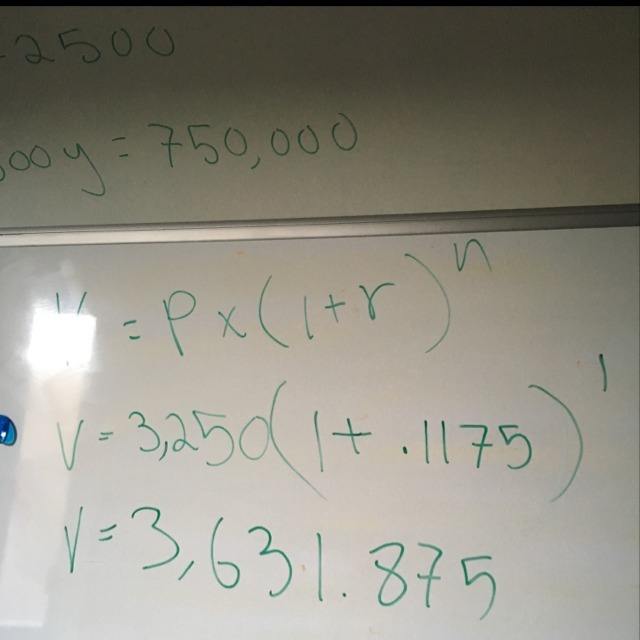 2500
00y = 750,000
= P x (1+r)^n
V = 3,250(1 + .1175)^1
V = 3,631.875